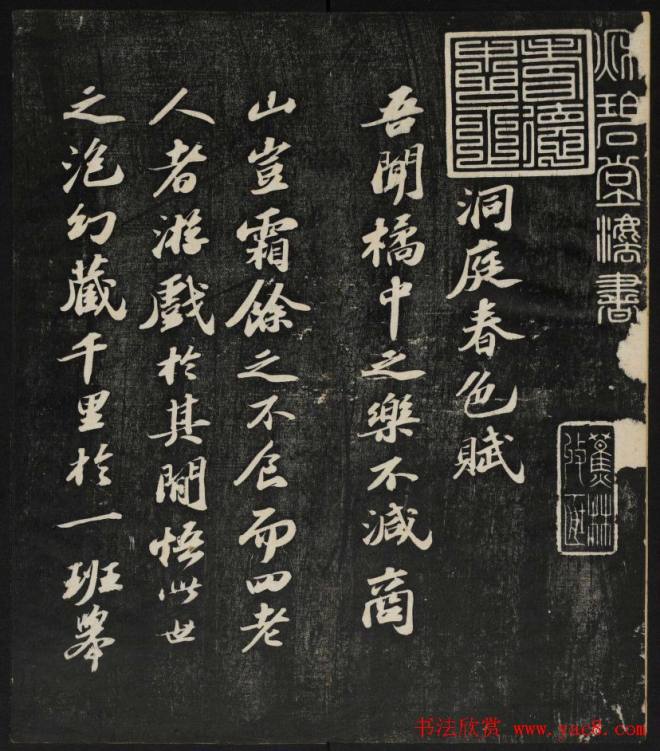 秋碧堂灋書
洞庭春色賦
吾聞橘中之樂不減商
山豈霜餘之不食而四老
人者游戲於其閒悟此世
之泡幻藏千里於一班舉
书法欣赏 www.yac8.com